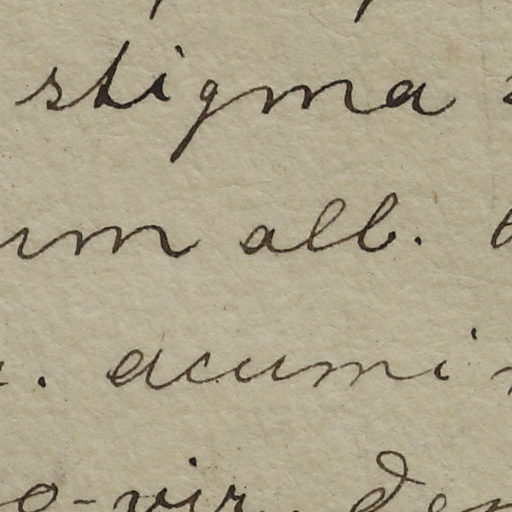 stigma
um alb.
. acumi
o-vir. den